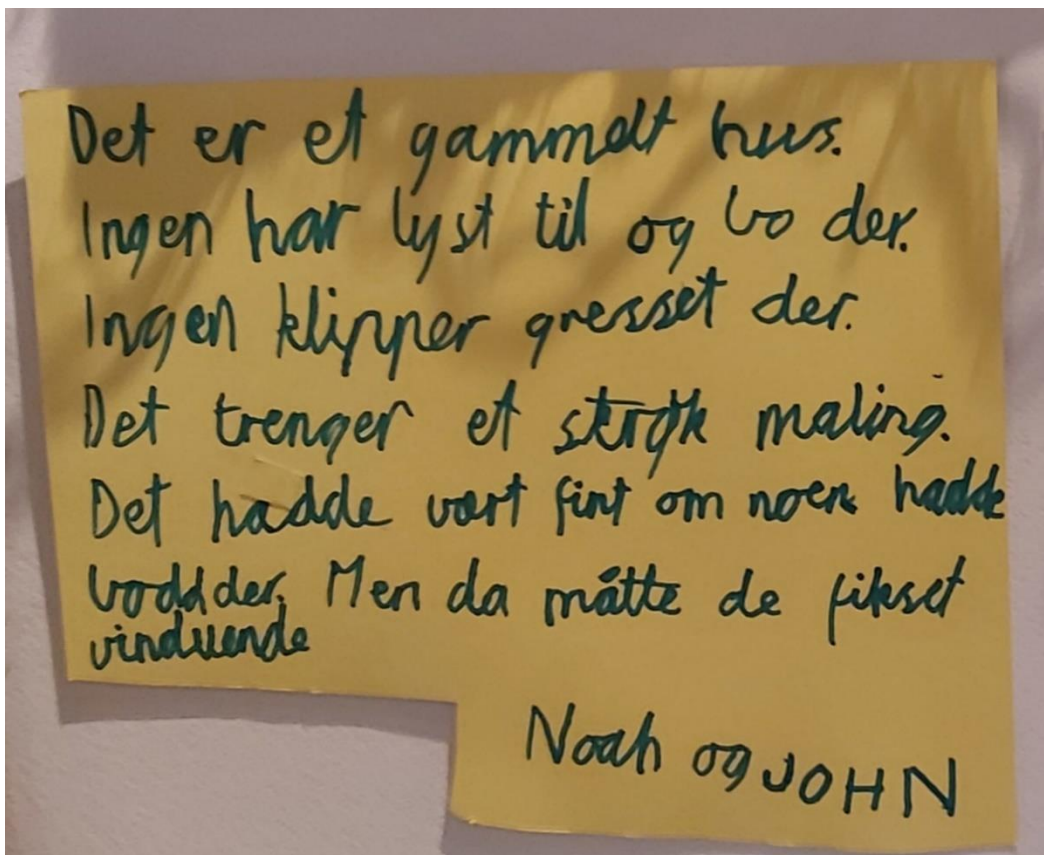 Det er et gammelt hus.
Ingen har lyst til og bo der.
Ingen klipper gresset der.
Det trenger et strøk maling.
Det hadde vært fint om noen hadde
bodd der. Men da måtte de fikset
vinduende
Noah og JOHN